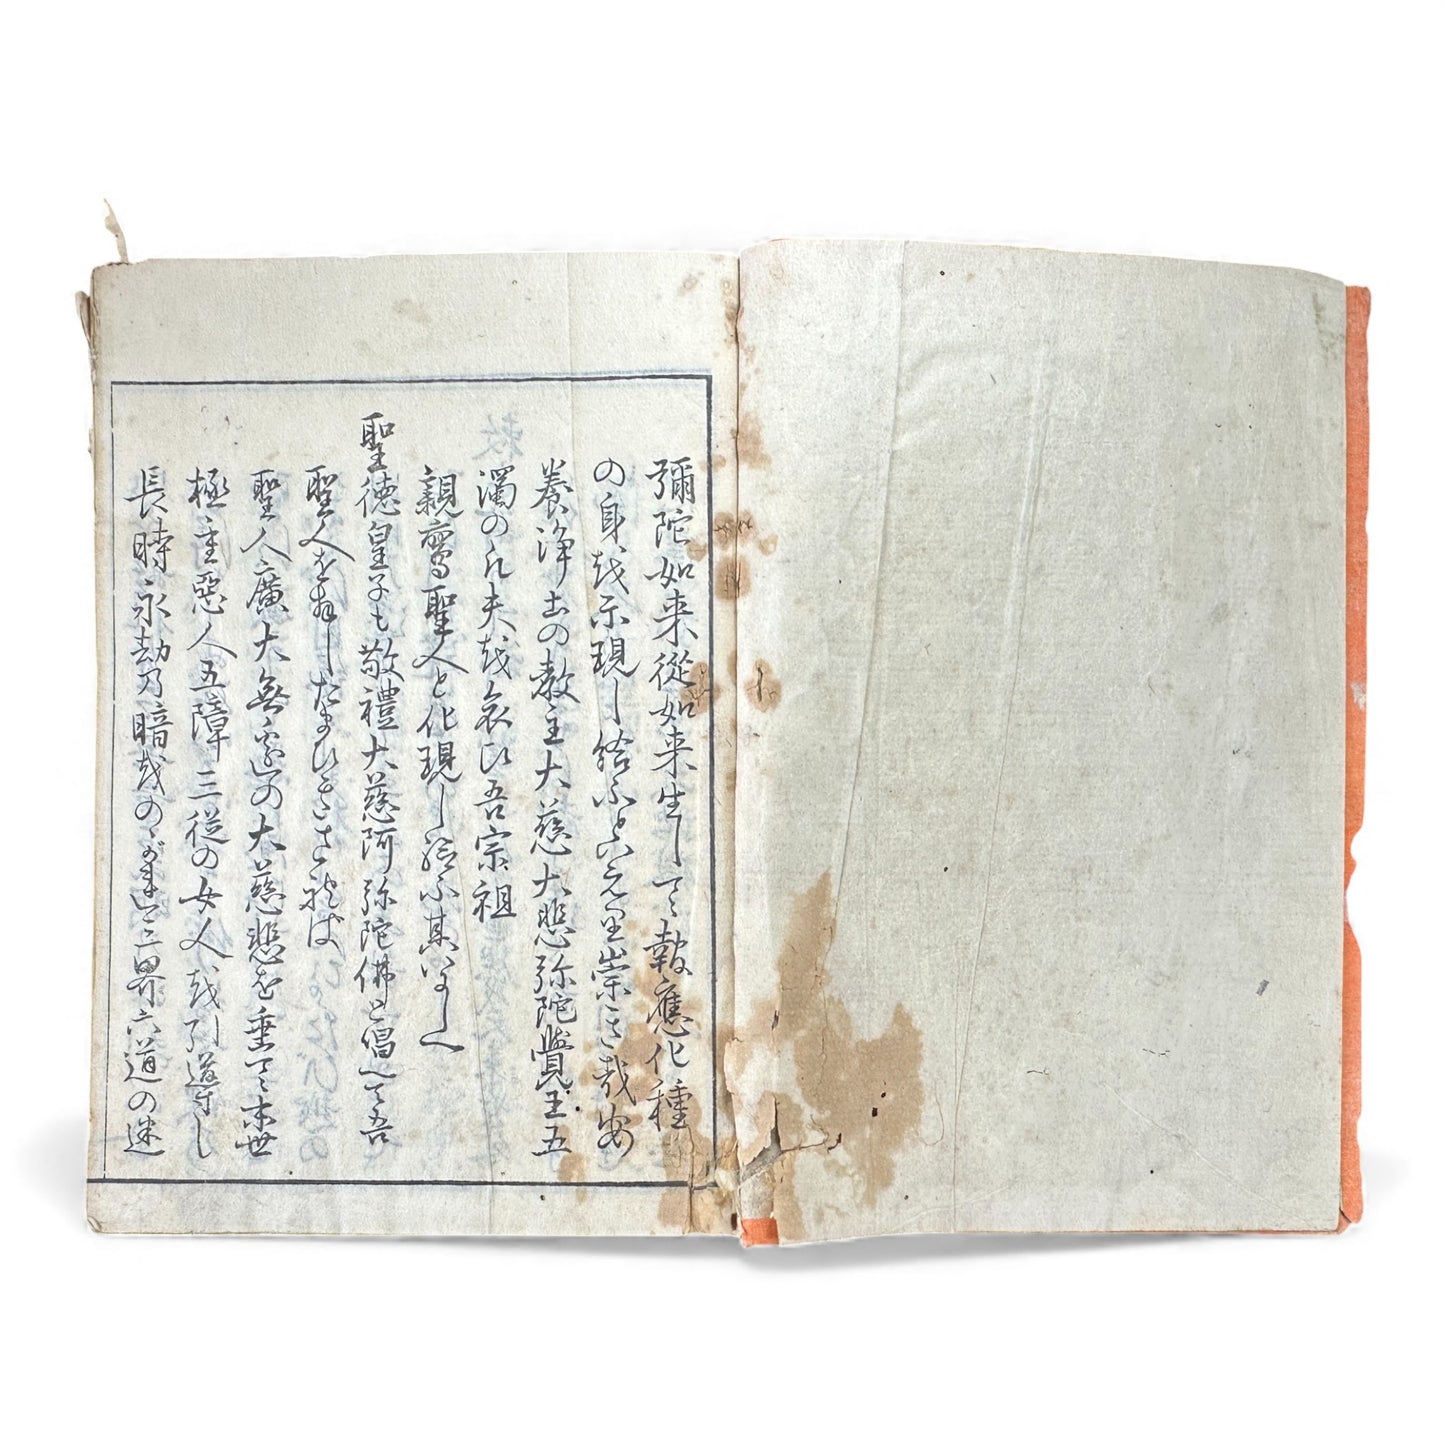 彌陀如来從如来生して報應化種
の身越示現し給ふと云え里崇き哉安
養浄土の教主大慈大悲弥陀覺王五
濁の凡夫越哀び吾宗祖
親鸞聖人と化現し給ふ其いにしへ
聖徳皇子も敬禮大慈阿弥陀佛と倡へて吾
聖人を拝したまひきされば
聖人廣大無邊の大慈悲を垂て末世
極重惡人五障三従の女人越引導し
長時永劫乃暗越のがれ三界六道の迷